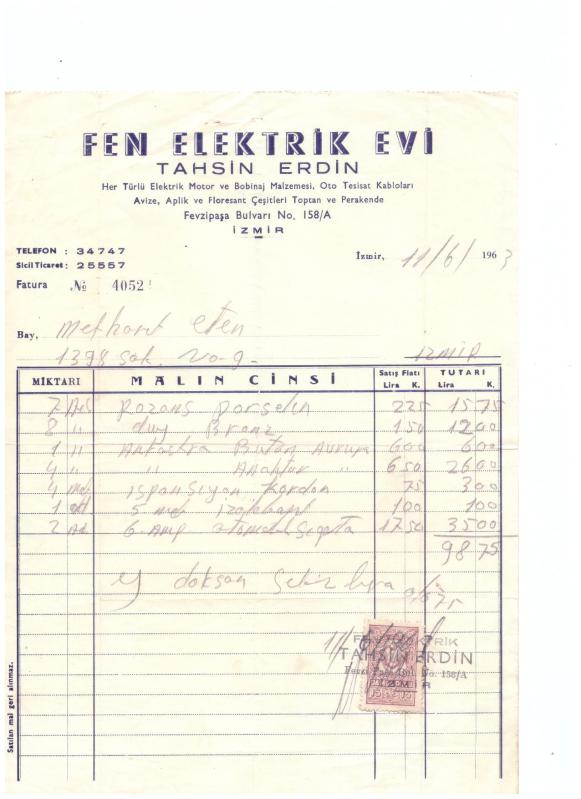 FEN ELEKTRİK EVİ
TAHSİN ERDİN
Her Türlü Elektrik Motor ve Bobinaj Malzemesi, Oto Tesisat Kabloları
Avize, Aplik ve Floresant Çeşitleri Toptan ve Perakende
Fevzipaşa Bulvarı No. 158/A
İZMİR
TELEFON : 34747
Sicil Ticaret : 25557
İzmir, 11/6/1963
Fatura № 4052
Bay, Methard eten
1398 sok. No-9- İZMİR
MİKTARI MALIN CİNSİ Satış Fiatı Lira K. TUTARI Lira K.
7 Ad Rozans porselen 225 1575
8 " duy Bronz 150 1200
1 " Ankastra Buton Avrupa 600 600
4 " " Anahtar " 650 2600
4 ispanşiyon Kordon 75 300
1 5 izolebant 100 100
2 Ad 6 Amp Sigorta 1750 3500
9875
Y doksan Sekiz lira 75
FEN ELEKTRİK
TAHSİN ERDİN
Fevzi Paşa Bul. No. 158/A
İZMİR
Satılan mal geri alınmaz.